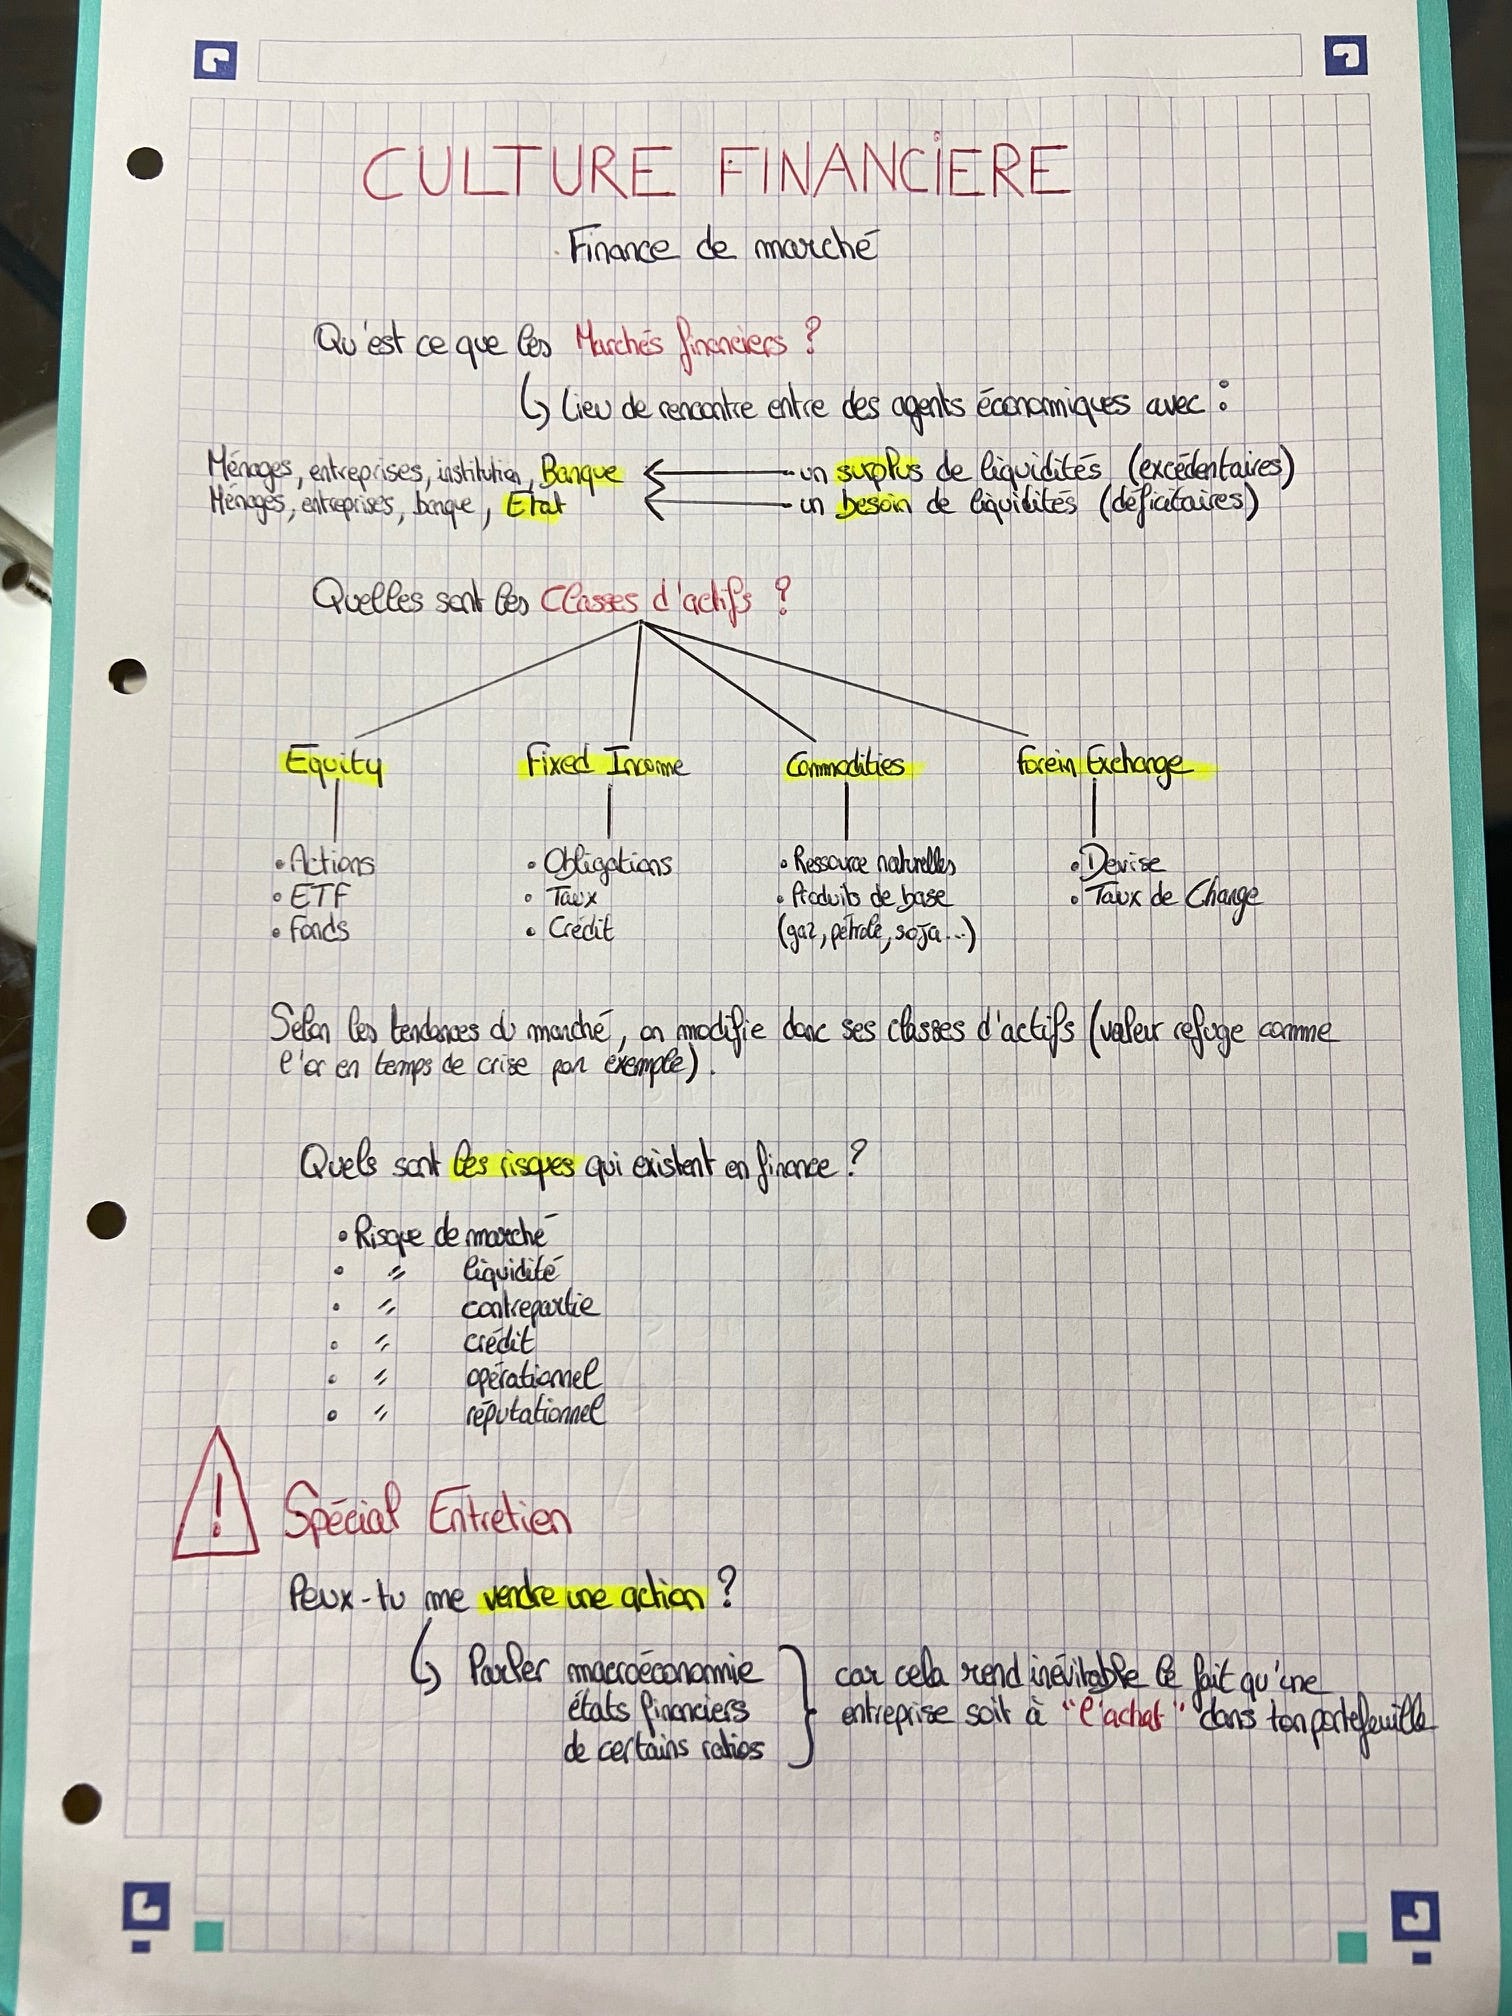 CULTURE FINANCIERE
Finance de marché
Qu'est ce que les Marchés financiers ?
↳ lieu de rencontre entre des agents économiques avec :
Ménages, entreprises, institution, Banque ← un surplus de liquidités (excédentaires)
Ménages, entreprises, banque, Etat ← un besoin de liquidités (déficitaires)
Quelles sont les Classes d'actifs ?
Equity Fixed Income Commodities Forein Exchange
• Actions • Obligations • Ressource naturelles • Devise
• ETF • Taux • Produits de base • Taux de Change
• Fonds • Crédit (gaz, pétrole, soja...)
Selon les tendances du marché, on modifie donc ses classes d'actifs (valeur refuge comme
l'or en temps de crise par exemple).
Quels sont les risques qui existent en finance ?
• Risque de marché
• " liquidité
• " contrepartie
• " crédit
• " opérationnel
• " réputationnel
! Spécial Entretien
Peux-tu me vendre une action ?
↳ Parler macroéconomie } car cela rend inévitable le fait qu'une
états financiers entreprise soit à "l'achat" dans ton portefeuille
de certains ratios